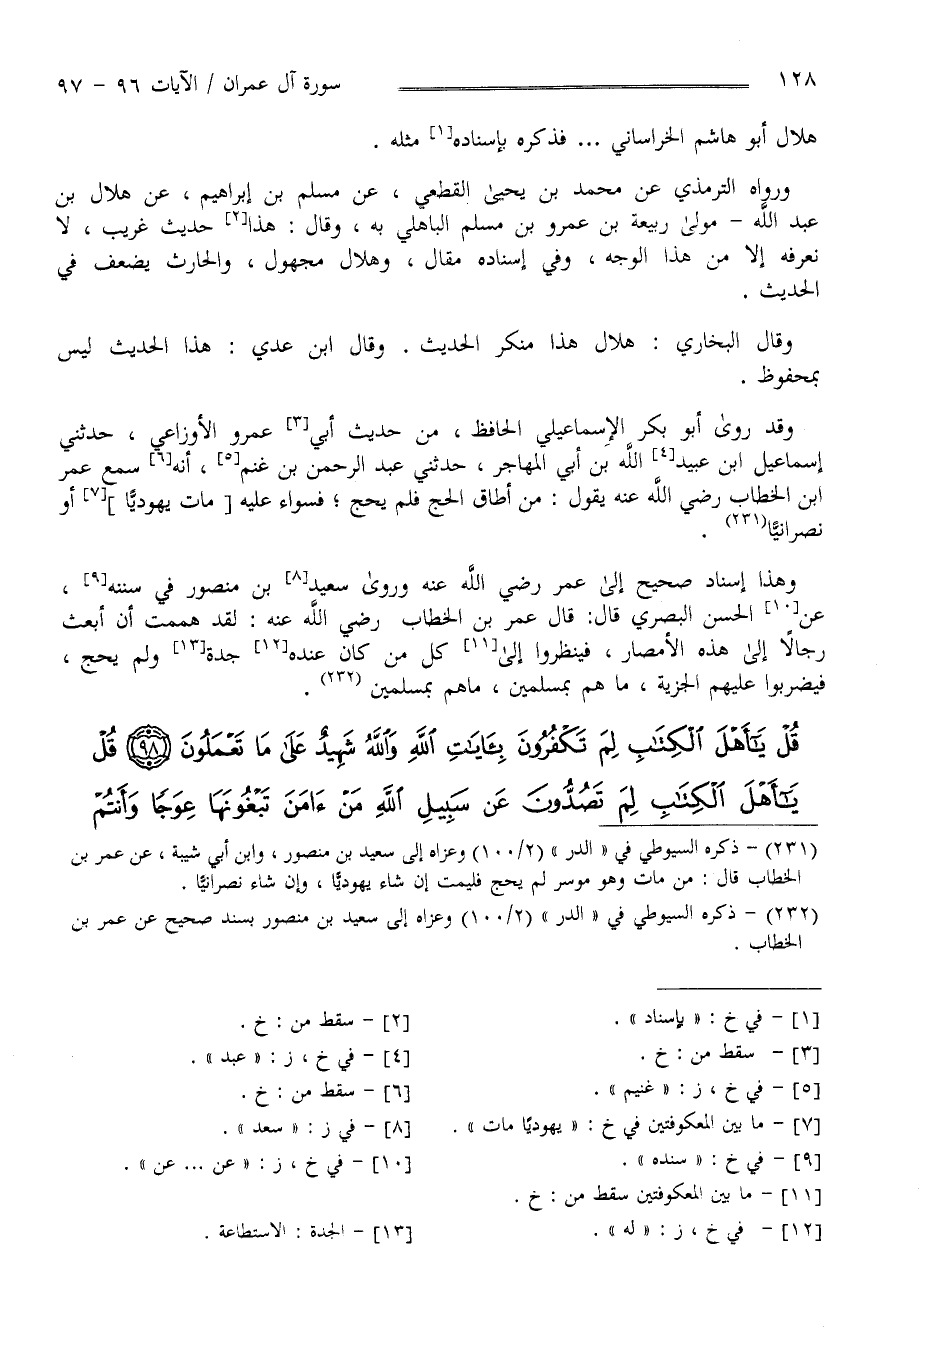 ١٢٨ سورة آل عمران / الآيات ٩٦ - ٩٧
هلال أبو هاشم الخراساني ... فذكره بإسناده[١] مثله .
ورواه الترمذي عن محمد بن يحيىٰ القطعي ، عن مسلم بن إبراهيم ، عن هلال بن
عبد اللَّه - مولىٰ ربيعة بن عمرو بن مسلم الباهلي به ، وقال : هذا[٢] حديث غريب ، لا
نعرفه إلا من هذا الوجه ، وفي إسناده مقال ، وهلال مجهول ، والحارث يضعف في
الحديث .
وقال البخاري : هلال هذا منكر الحديث . وقال ابن عدي : هذا الحديث ليس
بمحفوظ .
وقد روىٰ أبو بكر الإسماعيلي الحافظ ، من حديث أبي[٣] عمرو الأوزاعي ، حدثني
إسماعيل ابن عبيد[٤] اللَّه بن أبي المهاجر ، حدثني عبد الرحمن بن غنم[٥] ، أنه[٦] سمع عمر
ابن الخطاب رضي اللَّه عنه يقول : من أطاق الحج فلم يحج ؛ فسواء عليه [ مات يهوديًّا ][٧] أو
نصرانيًّا(٢٣١) .
وهذا إسناد صحيح إلىٰ عمر رضي اللَّه عنه وروىٰ سعيد[٨] بن منصور في سننه[٩] ،
عن[١٠] الحسن البصري قال: قال عمر بن الخطاب رضي اللَّه عنه : لقد هممت أن أبعث
رجالًا إلىٰ هذه الأمصار ، فينظروا إلىٰ[١١] كل من كان عنده[١٢] جدة[١٣] ولم يحج ،
فيضربوا عليهم الجزية ، ما هم بمسلمين ، ماهم بمسلمين (٢٣٢) .
قُلْ يَٰٓأَهْلَ ٱلْكِتَٰبِ لِمَ تَكْفُرُونَ بِـَٔايَٰتِ ٱللَّهِ وَٱللَّهُ شَهِيدٌ عَلَىٰ مَا تَعْمَلُونَ ﴿٩٨﴾ قُلْ
يَٰٓأَهْلَ ٱلْكِتَٰبِ لِمَ تَصُدُّونَ عَن سَبِيلِ ٱللَّهِ مَنْ ءَامَنَ تَبْغُونَهَا عِوَجًا وَأَنتُمْ
(٢٣١) - ذكره السيوطي في « الدر » (١٠٠/٢) وعزاه إلى سعيد بن منصور ، وابن أبي شيبة ، عن عمر بن
الخطاب قال : من مات وهو موسر لم يحج فليمت إن شاء يهوديًّا ، وإن شاء نصرانيًّا .
(٢٣٢) - ذكره السيوطي في « الدر » (١٠٠/٢) وعزاه إلى سعيد بن منصور بسند صحيح عن عمر بن
الخطاب .
[١] - في خ : « بإسناد » . [٢] - سقط من : خ .
[٣] - سقط من : خ . [٤] - في خ ، ز : « عبد » .
[٥] - في خ ، ز : « غنيم » . [٦] - سقط من : خ .
[٧] - ما بين المعكوفتين في خ : « يهوديًّا مات » . [٨] - في ز : « سعد » .
[٩] - في خ : « سنده » . [١٠] - في خ ، ز : « عن ... عن » .
[١١] - ما بين المعكوفتين سقط من : خ .
[١٢] - في خ ، ز : « له » . [١٣] - الجدة : الاستطاعة .